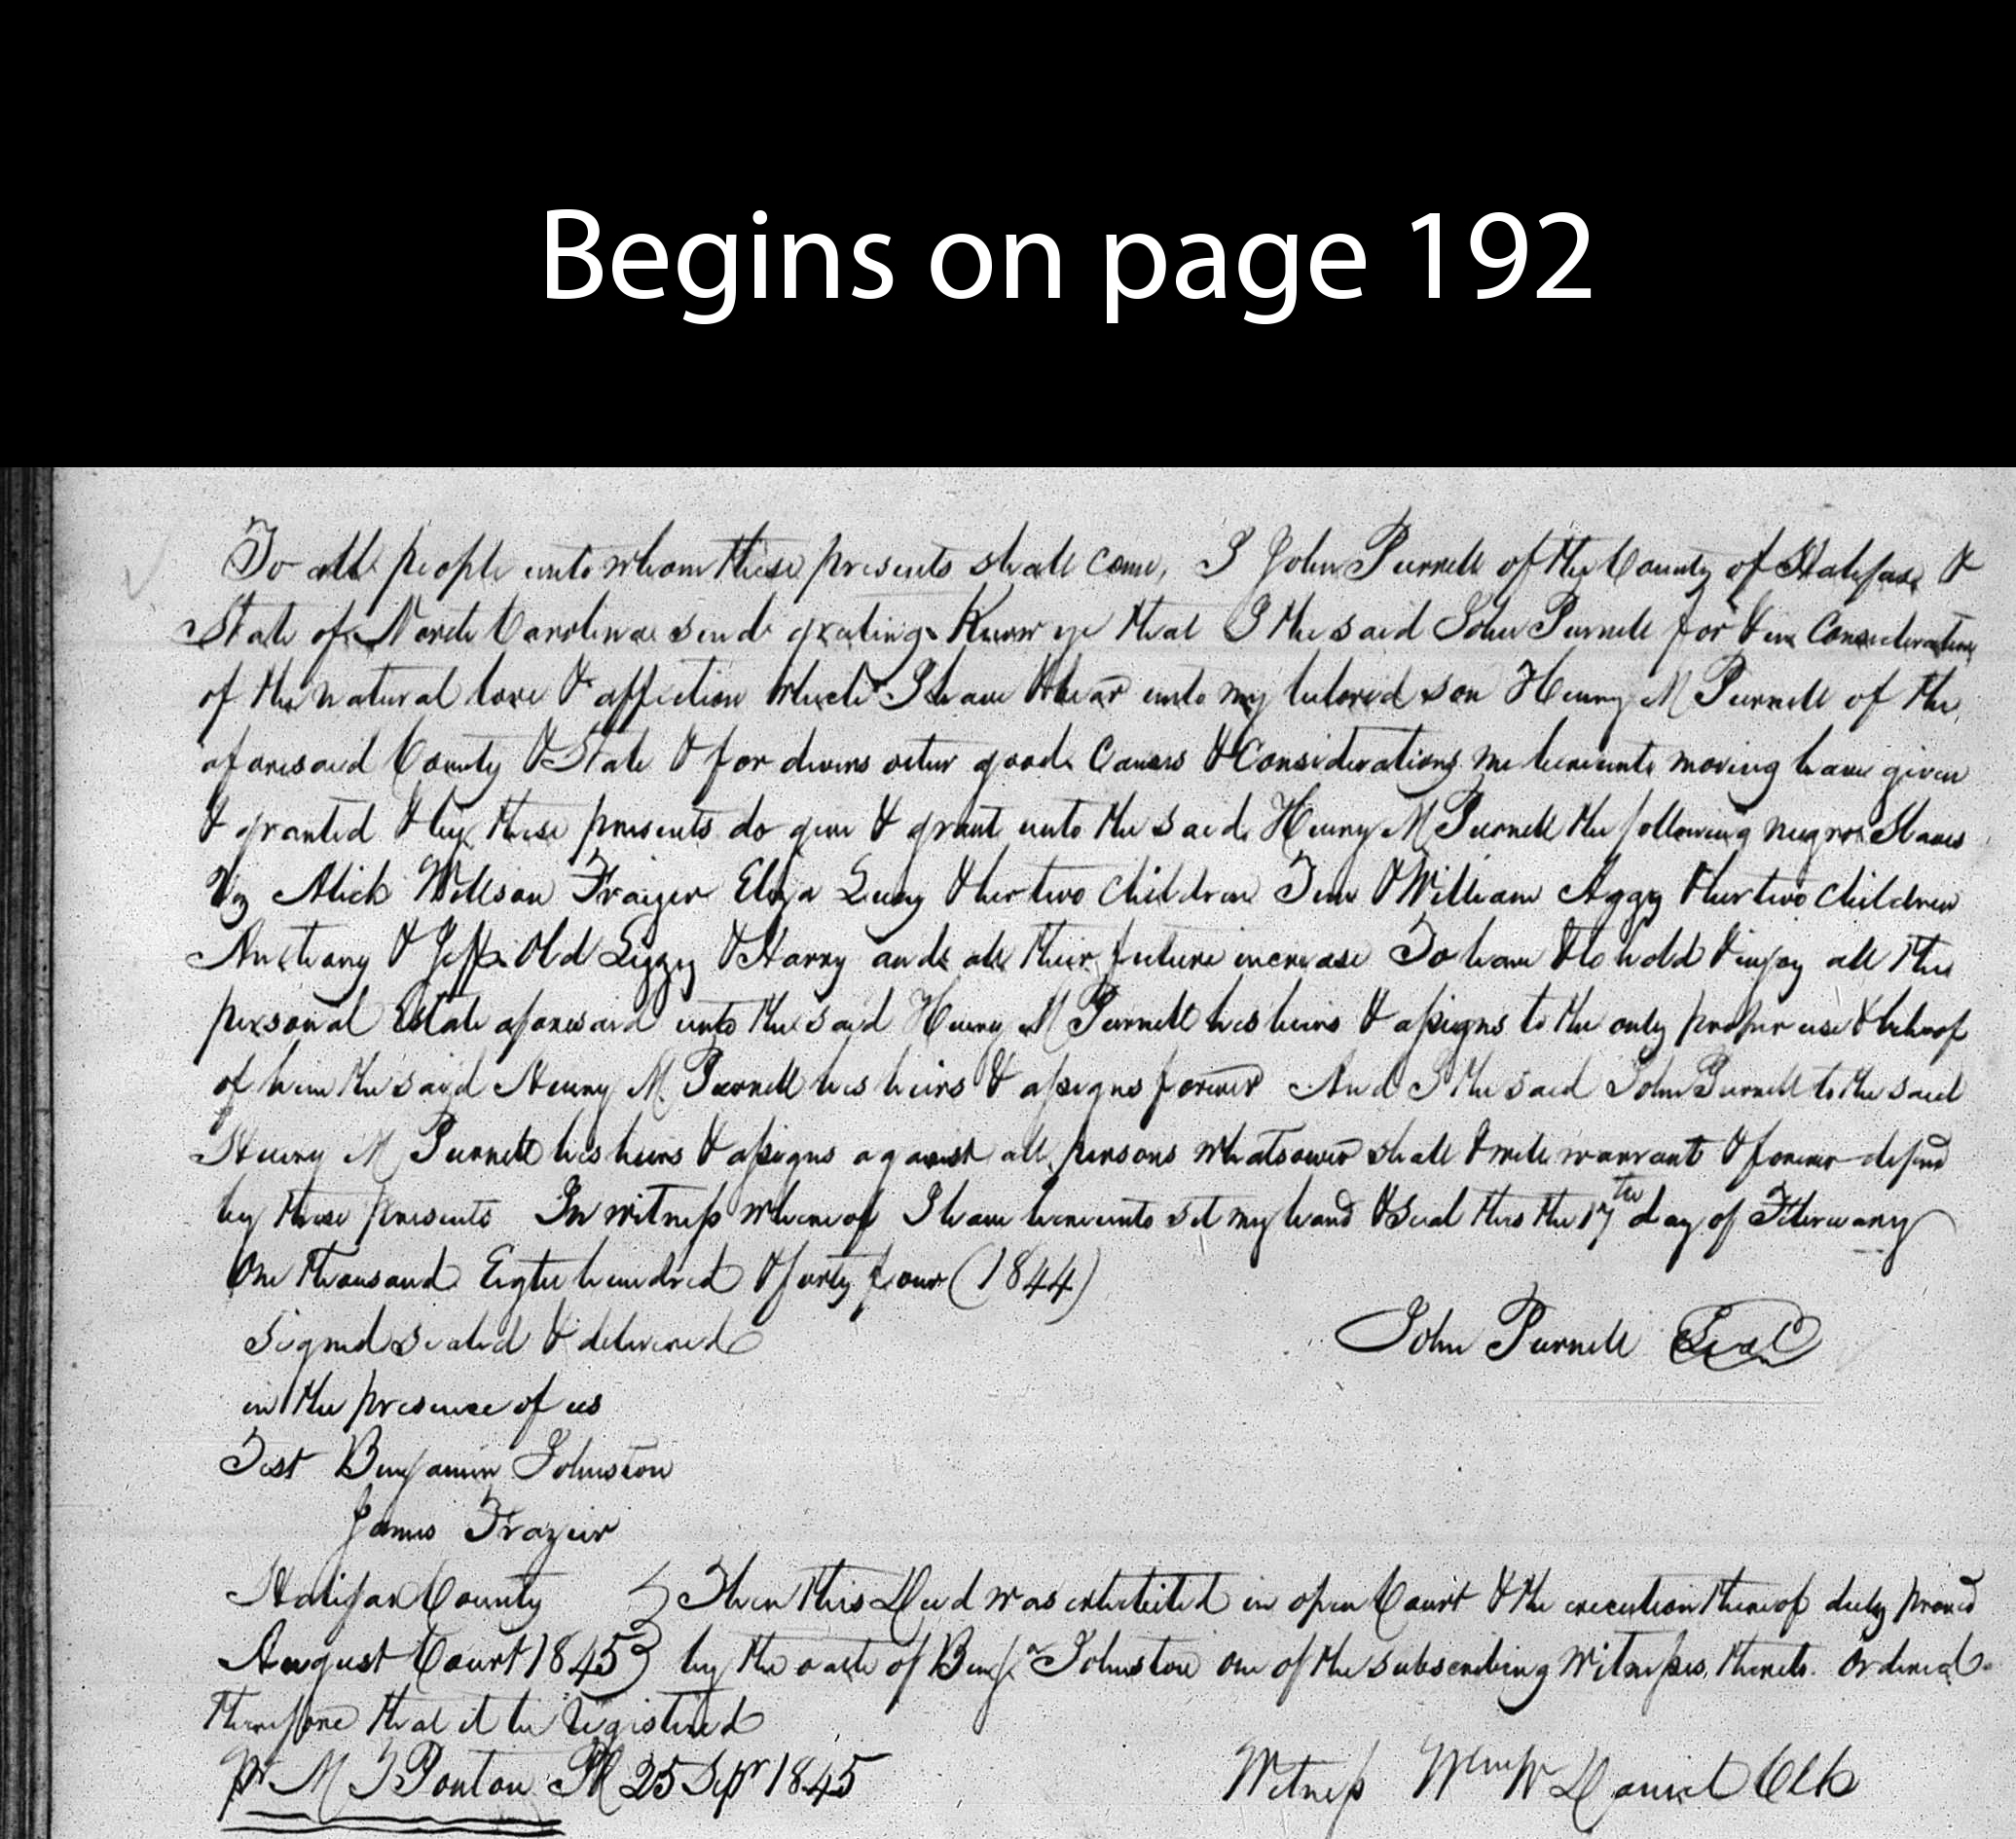 Begins on page 192
To all people unto whom these presents shall come, I John Purnell of the County of Halifax &
State of North Carolina send greeting Know ye that I the said John Purnell for & in Consideration
of the natural love & affection which I have & bear unto my beloved son Henry M Purnell of the
aforesaid County & State & for divers other good Causes & Considerations me hereunto moving have given
& granted & by these presents do give & grant unto the said Henry M Purnell the following negroe Slaves
Viz Alick Willson Fraizer Eliza Lucy & her two Children Tem & William Aggy & her two Children
Anthony & Jeff Old Lizzy & Harry and all their future increase To have & to hold & injoy all the
personal Estate aforesaid unto the said Henry M Purnell his heirs & assigns to the only proper use & behoof
of him the said Henry M Purnell his heirs & assigns forever And I the said John Purnell to the said
Henry M Purnell his heirs & assigns against all persons whatsoever shall & will warrant & forever defend
by these presents In witness whereof I have hereunto set my hand & Seal this the 17th day of February
One thousand Eight hundred & forty four (1844)
Signed sealed & delivered John Purnell Seal
in the presence of us
Test Benjamin Johnston
James Frazier
Halifax County } Then this Deed was exhibited in open Court & the execution thereof duly proved
August Court 1845 } by the oath of Benjn Johnston one of the subscribing Witnesses thereto. Ordered
therefore that it be Registered
pr M T Ponton PR 25 Sepr 1845 Witness Wm W Daniel Clk